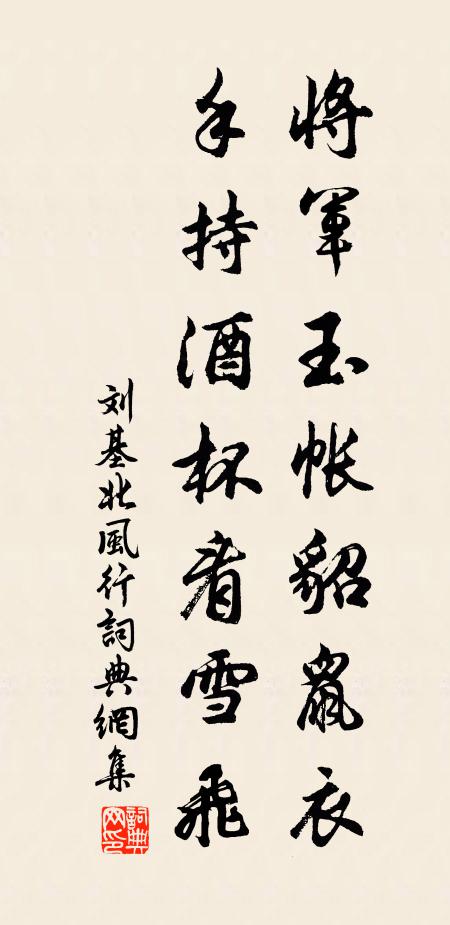 將軍玉帳貂鼠衣
手持酒杯看雪飛
刘基北風行詞典網集
詞典网印